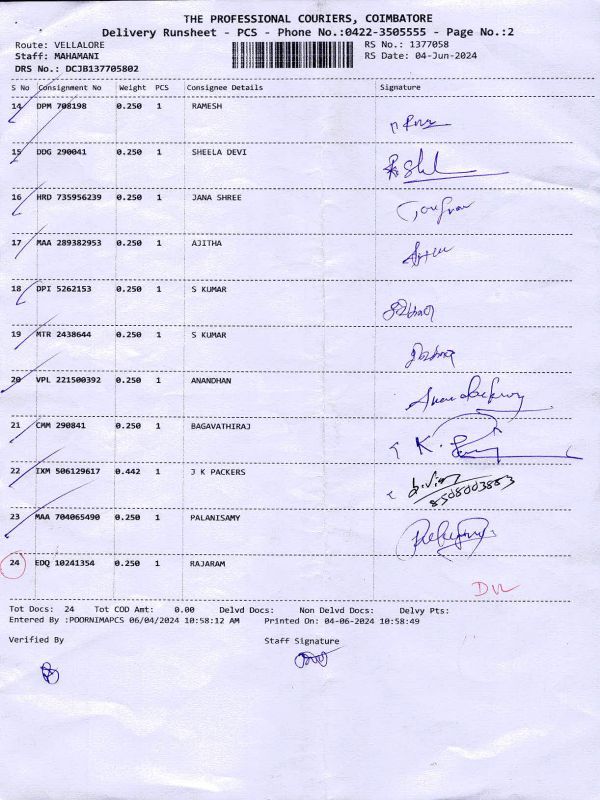 THE PROFESSIONAL COURIERS, COIMBATORE
Delivery Runsheet - PCS - Phone No.:0422-3505555 - Page No.:2
Route: VELLALORE RS No.: 1377058
Staff: MAHAMANI RS Date: 04-Jun-2024
DRS No.: DCJB137705802
S No Consignment No Weight PCS Consignee Details Signature
14 DPM 708198 0.250 1 RAMESH
15 DDG 290041 0.250 1 SHEELA DEVI
16 HRD 735956239 0.250 1 JANA SHREE
17 MAA 289382953 0.250 1 AJITHA
18 DPI 5262153 0.250 1 S KUMAR
19 MTR 2438644 0.250 1 S KUMAR
20 VPL 221500392 0.250 1 ANANDHAN
21 CMM 290841 0.250 1 BAGAVATHIRAJ
K.
22 IXM 506129617 0.442 1 J K PACKERS
8508003883
23 MAA 704065490 0.250 1 PALANISAMY
24 EDQ 10241354 0.250 1 RAJARAM
Tot Docs: 24 Tot COD Amt: 0.00 Delvd Docs: Non Delvd Docs: Delvy Pts:
Entered By :POORNIMAPCS 06/04/2024 10:58:12 AM Printed On: 04-06-2024 10:58:49
Verified By Staff Signature